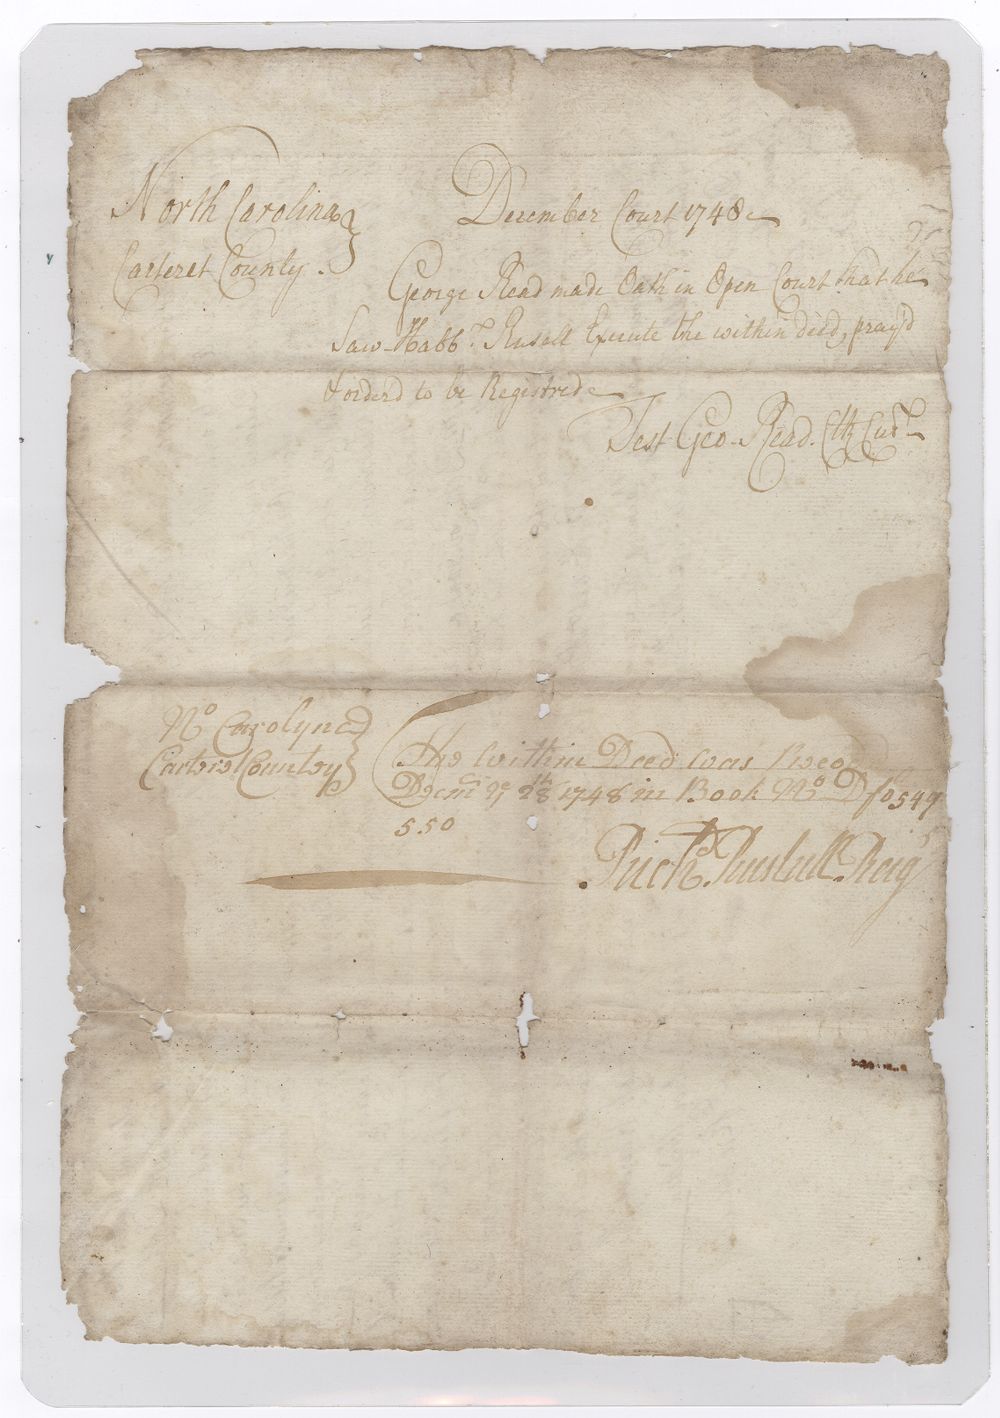 North Carolina
Carteret County.
December Court 1748
George Read made Oath in Open Court that he
Saw Habb.k Rusell Execute the within deed, pray'd
& orderd to be Registred
Test Geo. Read. Clk Curt
No Carolyna
Carteret County
The within Deed was
Decm ye 28th 1748 in Book No D fo 549
550
Richd. Russull. Reigr